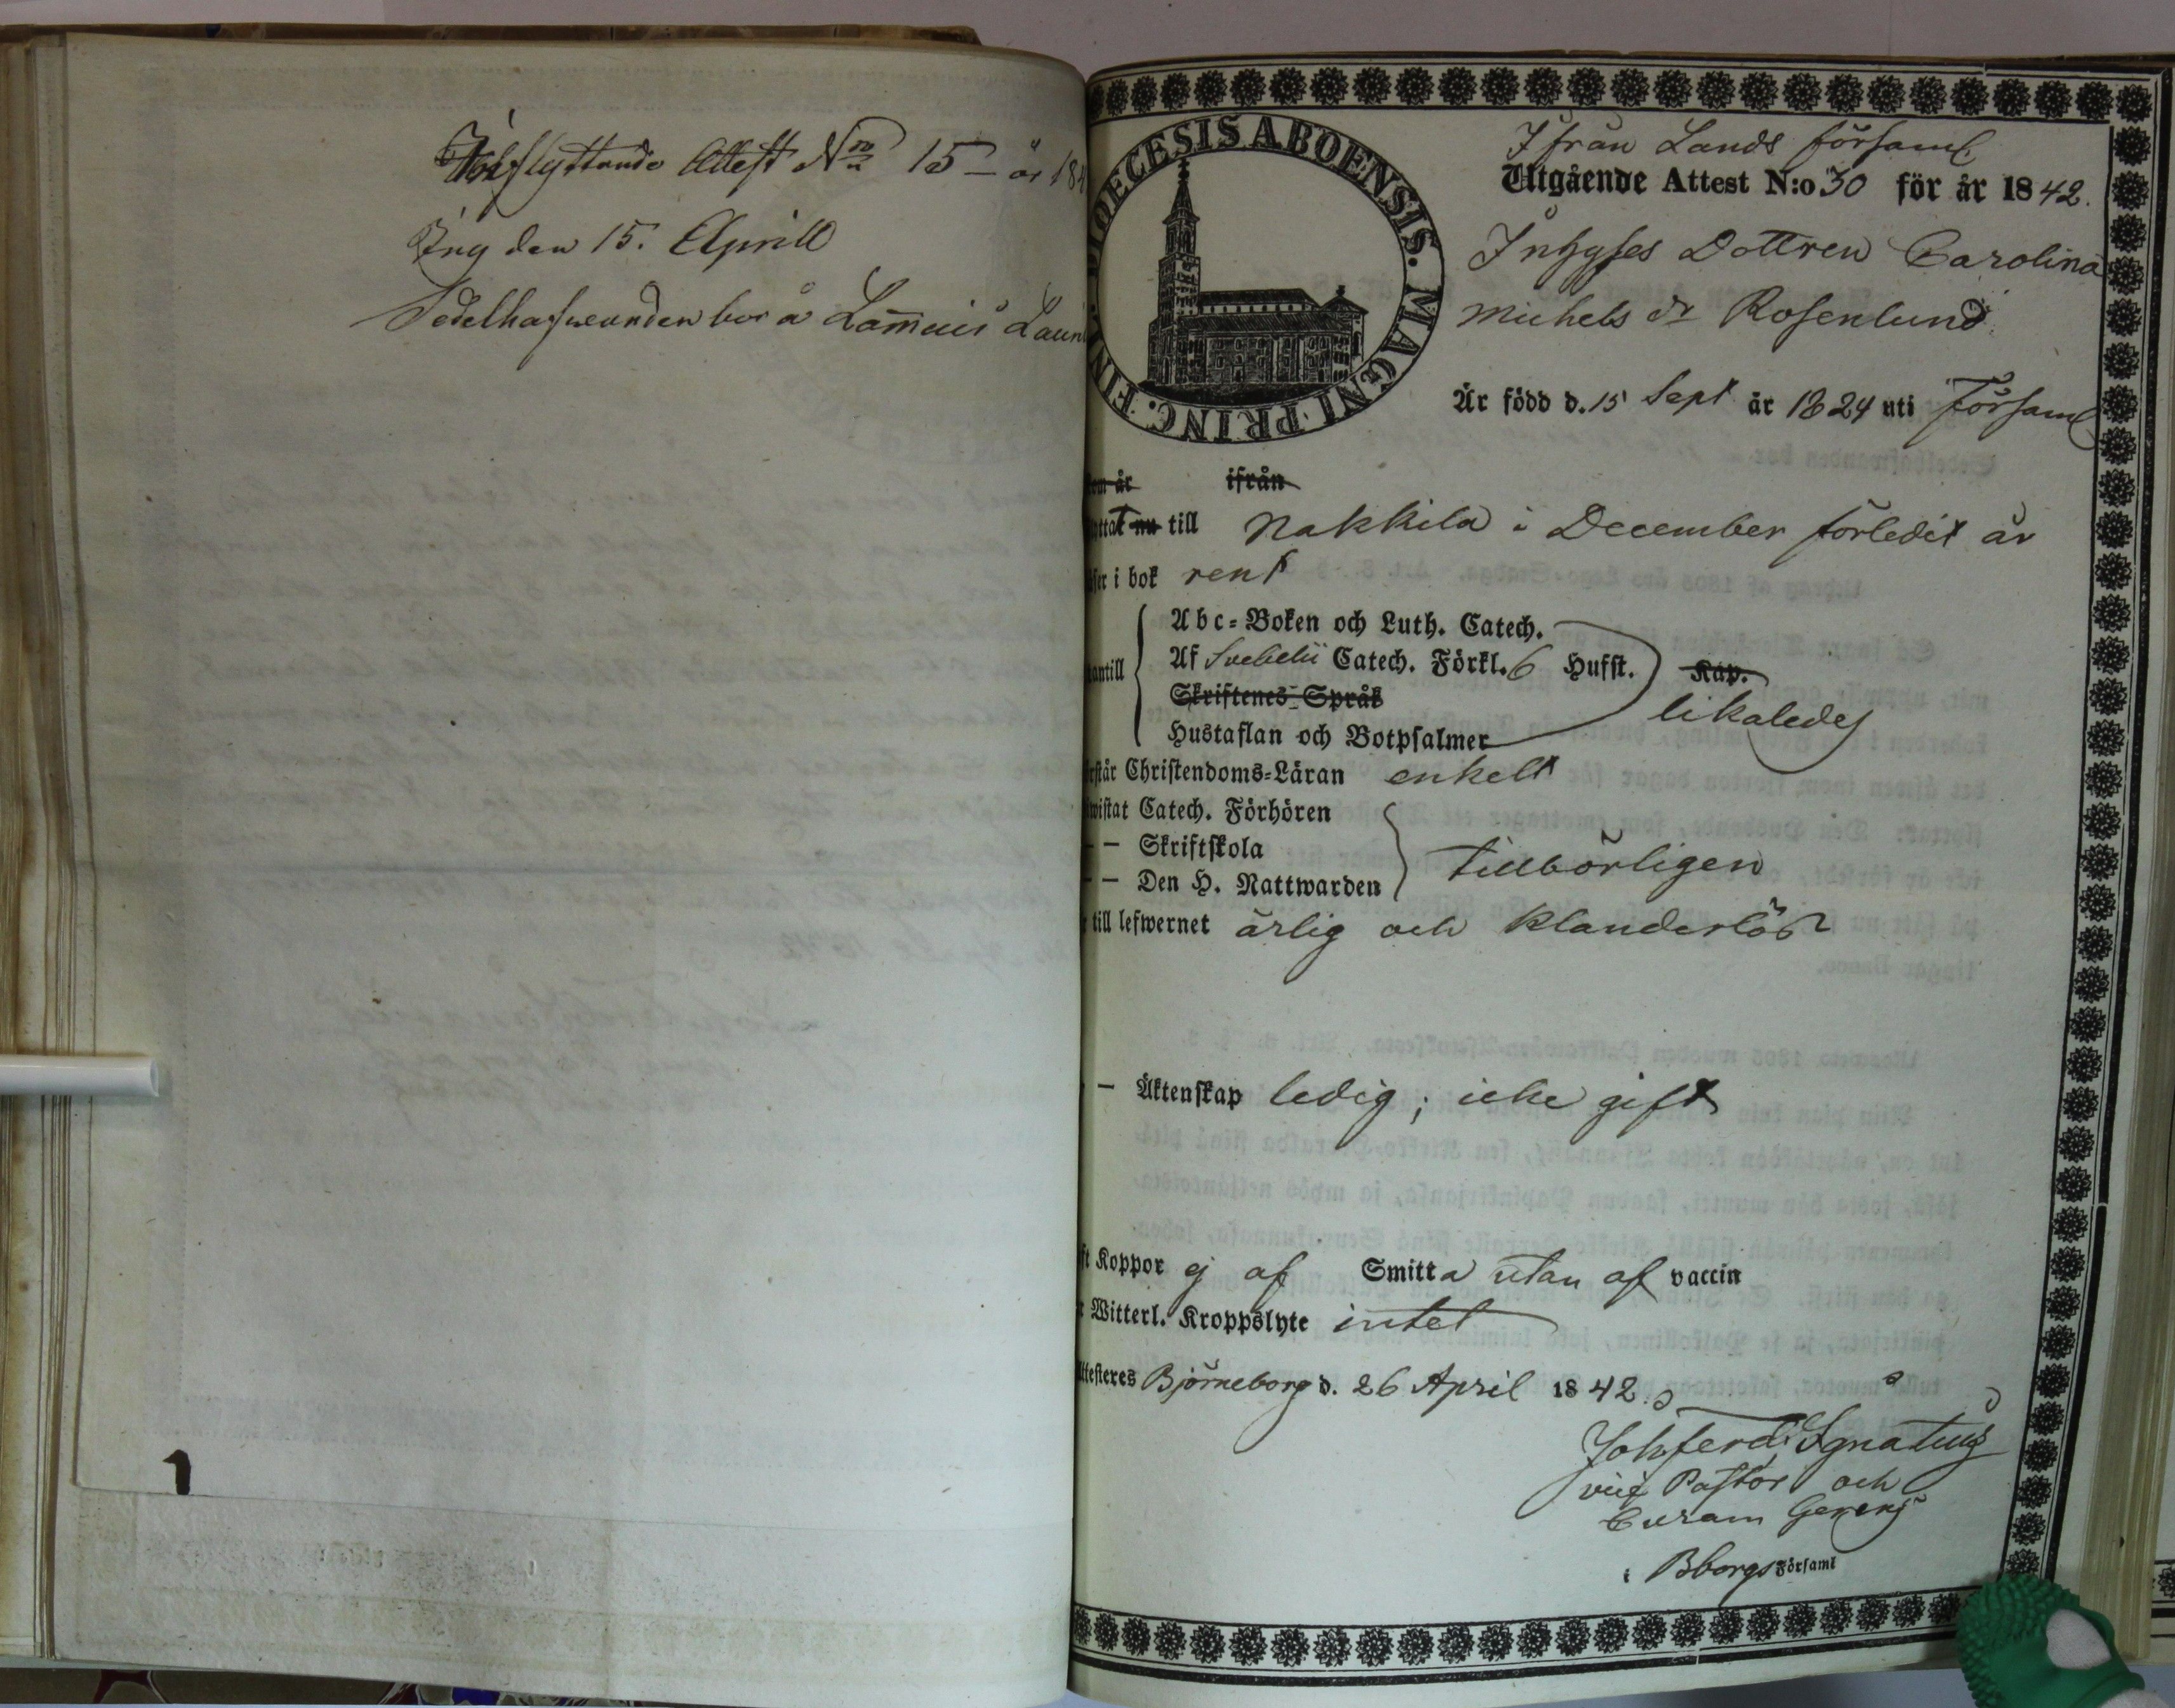 Inflyttande Attest No 15 år 184
Ing den 15. Aprill
Sedelhafwanden bor å Lammais Laun
DIOECESIS ABOENSIS. MAGNI PRINC. FINL.
Ifrån Lands församl
Utgående Attest N:o 30 för år 1842.
Inhyses Dottren Carolina
Michels dr Rosenlund
Är född d. 15 Sept år 1824 uti Församl
om år ifrån
yttat nu till Nakkila i December förledit år
äser i bok rent
Abc-Boken och Luth. Catech.
Af Svebelii Catech. Förkl. 6 Hufst. Kap.
antill
Skriftenes Språk
likaledes
Hustaflan och Botpsalmer
rstår Christendoms-Läran enkelt
wistat Catech. Förhören
— Skriftskola
tillbörligen
— Den H. Nattwarden
r till lefwernet ärlig och klanderlös
— Äktenskap ledig; icke gift
ft Koppor ej af Smitta utan af vaccin
r Witterl. Kroppslyte intet
Attesteres Björneborg d. 26 April 1842.
Joh Ferd. Ignatius
vice Pastor och
Curam Gerens
i Bborgs Församl